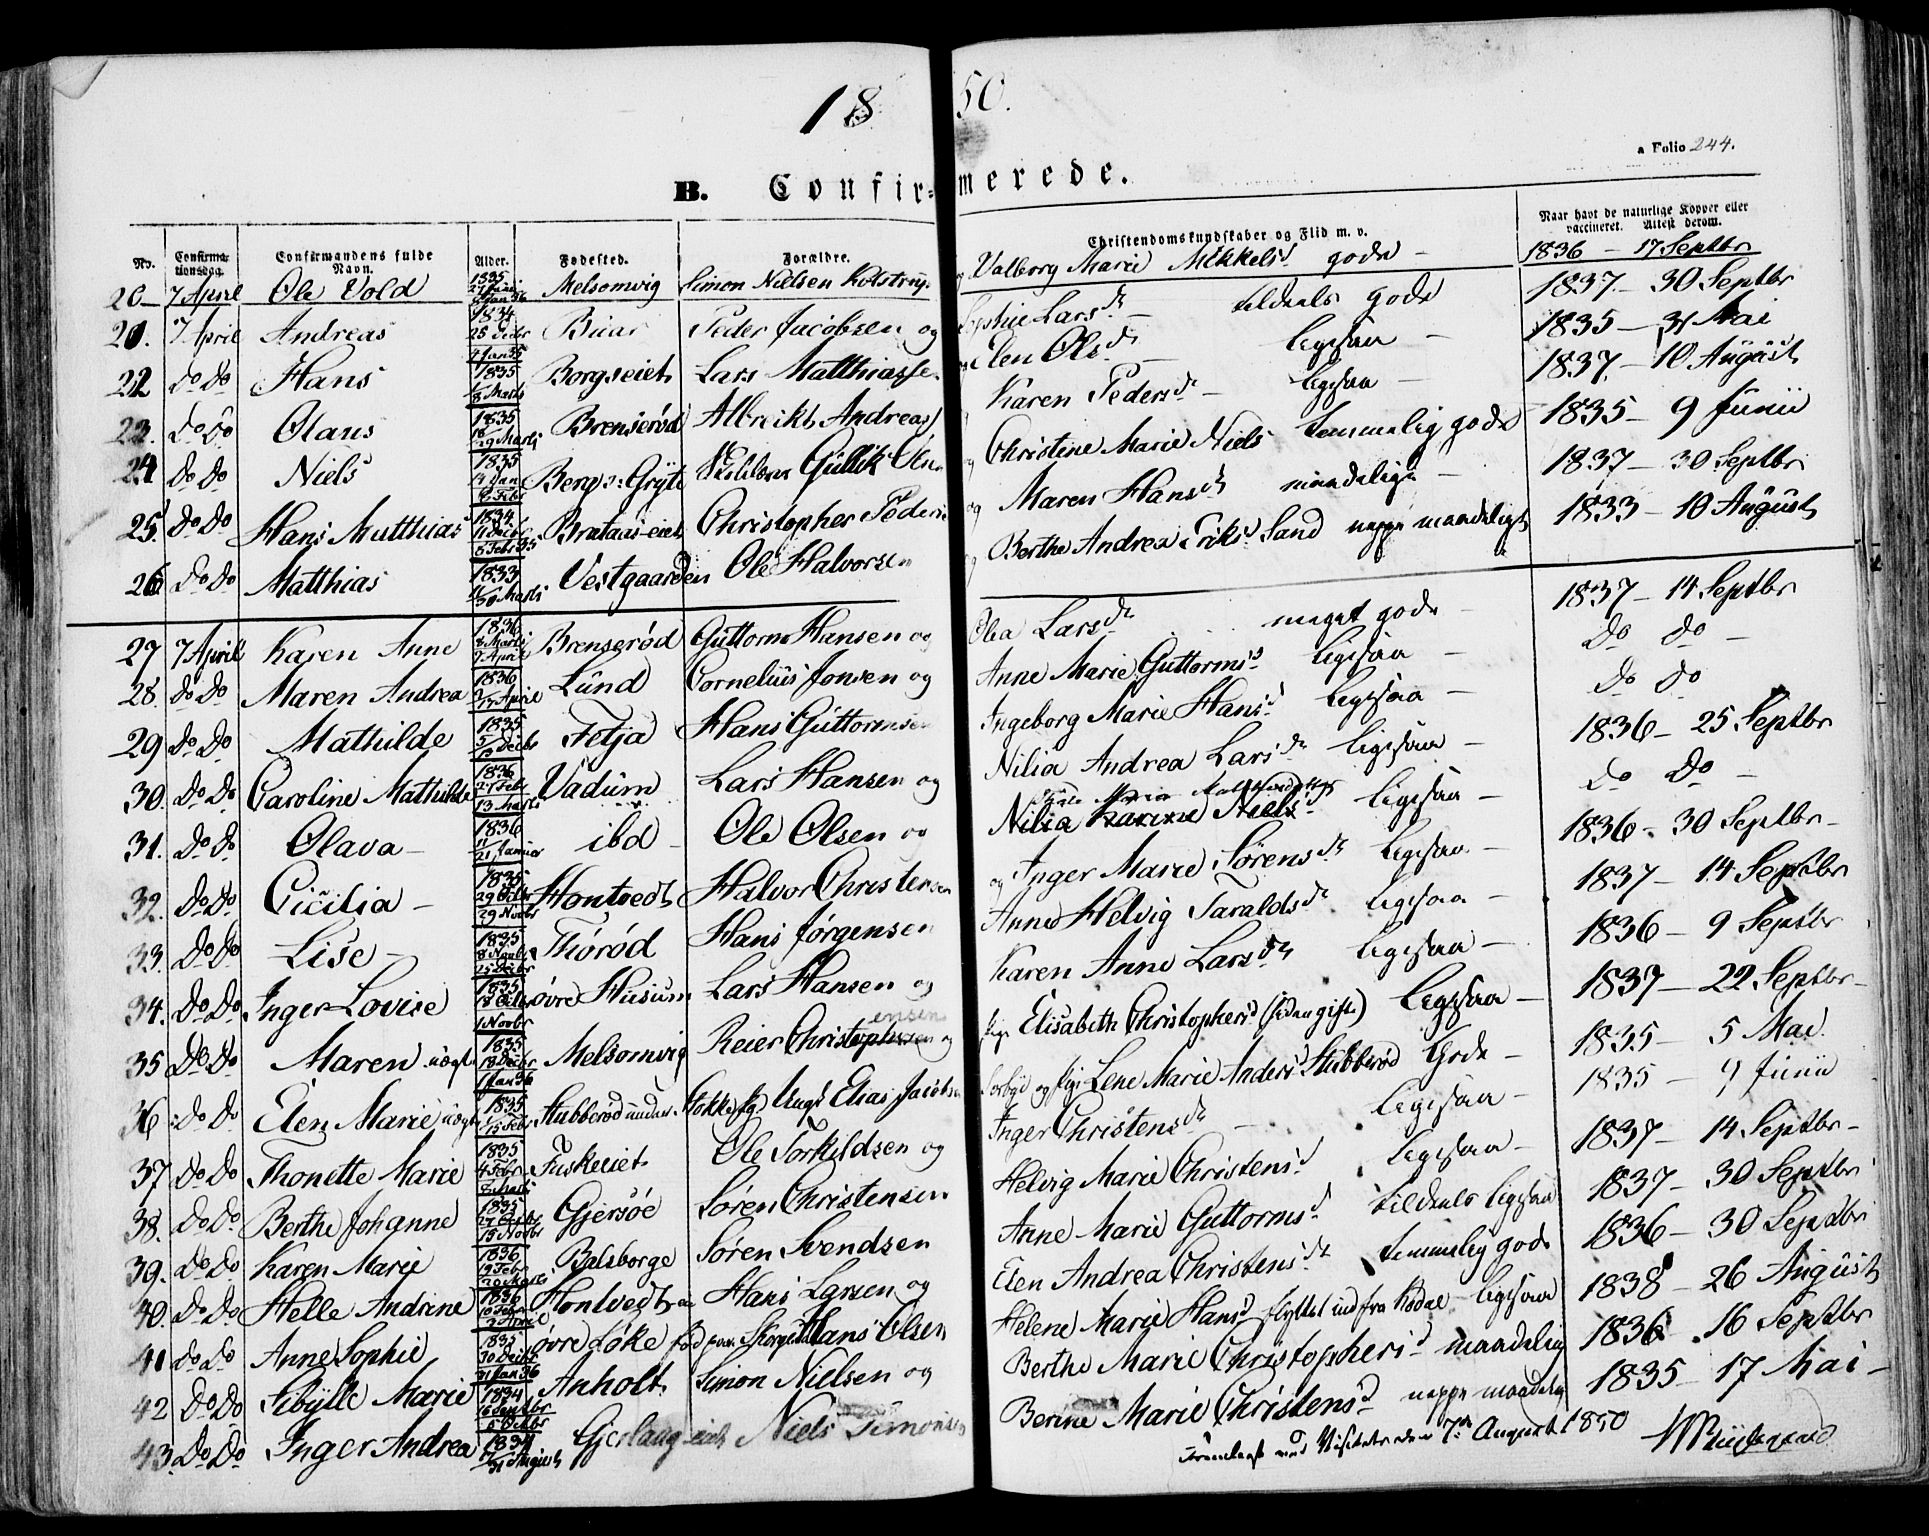 1850.
a Folio 244.
B. Confirmerede.
No. Confirmationsdag. Confirmandens fulde Navn. Alder. Fødested. Forældre. Christendomskundskaber og Flid m. v. Naar havt de naturlige Kopper eller vaccineret. Attest derom.
20 7 April Ole Vold 1835 Melsomvig Simon Nielsen Kolstrup og Valborg Marie Mikkelsd. gode 1836 – 17 Septbr
21. 7 April Andreas 1834 28 Decbr 4 Jan 35 Buar Peder Jacobsen og Sophie Larsdr. tildeels gode 1837 – 30 Septbr
22 Do Do Hans 1835 8 Marts Borgeeiet Lars Matthiassen og Elen Olsdr. – ligesaa – 1835 – 31 Mai
23. Do Do Olaus 1835 29 Marts Brenserød Albreikt Andreass Karen Pedersdr. – ligesaa – 1837 – 10 August
24 Do Do Niels 1835 Berg Gryte Gullik Olsen og Christine Marie Niels temmelig gode 1835 – 9 Junii
25 Do Do Hans Matthias 1834 5 Febr 35 Brataas-eiet Christopher Peders og Maren Hansdr maadelige – 1837 – 30 Septbr
26 Do Do Matthias 1833 30 Marts Vestgaarden Ole Halvorsen og Berthe Andrea Eriksd. Sand neppe maadeligt 1833 – 10 August
27 7 April Karen Anne 1836 8 Marts 7 April Brenserød Guttorm Hansen og Olea Larsdr. meget gode – 1837 – 14 Septbr
28. Do Do Maren Andrea 1836 17 April Lund Cornelius Jonsen og Anne Marie Guttormsd. ligesaa – Do Do –
29 Do Do Mathilde 1835 5/13 Decbr Fetja Hans Guttormsen Ingeborg Marie Hansd. ligesaa – Do Do
30. Do Do Caroline Mathilde 1836 27 Febr 13 Marts Vadum Lars Hansen og Nilia Andrea Larsdr ligesaa – 1836 – 25 Septbr
31. Do Do Olava – 1836 11/21 Januar ibd – Ole Olsen og Nilia Karine Nielsd ligesaa – Do Do –
32. Do Do Cicilia – 1835 29 Octbr 29 Novbr Hontvedt Halvor Christensen og Inger Marie Sørensdr ligesaa – 1836 – 30 Septbr –
33. Do Do Lise – 1835 8 Novbr 25 Decbr Thorød Hans Jørgensen Anne Helvig Taraldsdr ligesaa – 1837 – 14 Septbr
34. Do Do Inger Lovise 1835 1 Novbr øvre Husum Lars Hansen og Karen Anne Larsdr ligesaa – 1836 – 9 Septbr
35 Do Do Maren uægte 1835 18 Decbr 1 Jan 36 Melsomvig Reier Christophersen ensen og pige Elisabeth Christophersd (siden gift) ligesaa – 1837 – 22 Septbr –
36 Do Do Elen Marie uægte 1835 15 Febr Stubberød under Stokke sg. Ungk Elias Jacobsen Sørbye og pige Lene Marie Andersd Stubberød Gode – 1835 – 5 Mai.
37 Do Do Thonette Marie 1835 4 Febr 8 Marts Fuskeeiet Ole Torkildsen og Inger Christensdr – ligesaa – 1835 – 9 Junii
38. Do Do Berthe Johanne 1835 27 Octbr 15 Novbr Gjersøe Søren Christensen Helvig Marie Christensd. ligesaa – 1837 – 14 Septbr –
39. Do Do Karen Marie 1836 19 Febr 20 Marts Bulsborge Søren Svendsen Anne Marie Guttormsd. tildeels ligesaa 1837 – 30 Septbr
40. Do Do Helle Andrine 1836 10 Febr 2 April Hontvedt Hans Larsen og Elen Andrea Christensdr temmelig gode 1836 – 30 Septbr
41 Do Do Anne Sophie 1835 30 Decbr 31 Jan 36 øvre Løke Hans Olsen Helene Marie Hansd flyttet ind fra Kodal – ligesaa 1838 – 26 August
42 Do Do Sibylle Marie 1834 16 Septbr 5 Octbr Anholt Simon Nielsen og Berthe Marie Christophersd maadelig 1836 16 Septbr
43. Do Do Inger Andrea 1834 31 August Gjerslaug-eiet Niels Simonsen Berine Marie Christensd. neppe maadelig 1835 – 17 Mai –
Fremlagt ved Visitatsen 7de August 1850